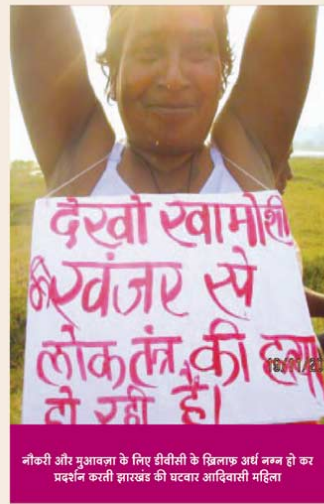 देखो खामोशी
की खंजर से
लोकतंत्र की हत्या
हो रही है।
नौकरी और मुआवज़ा के लिए डीवीसी के ख़िलाफ़ अर्ध नग्न हो कर
प्रदर्शन करती झारखंड की घटवार आदिवासी महिला